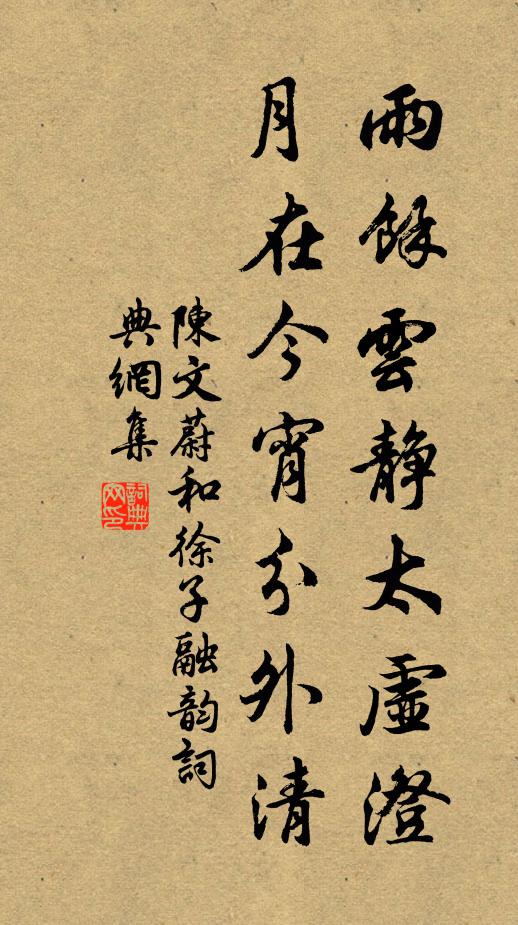 雨餘雲静太虛澄
月在今宵分外清
陳文蔚和徐子融韵詞
典網集
詞典
网印